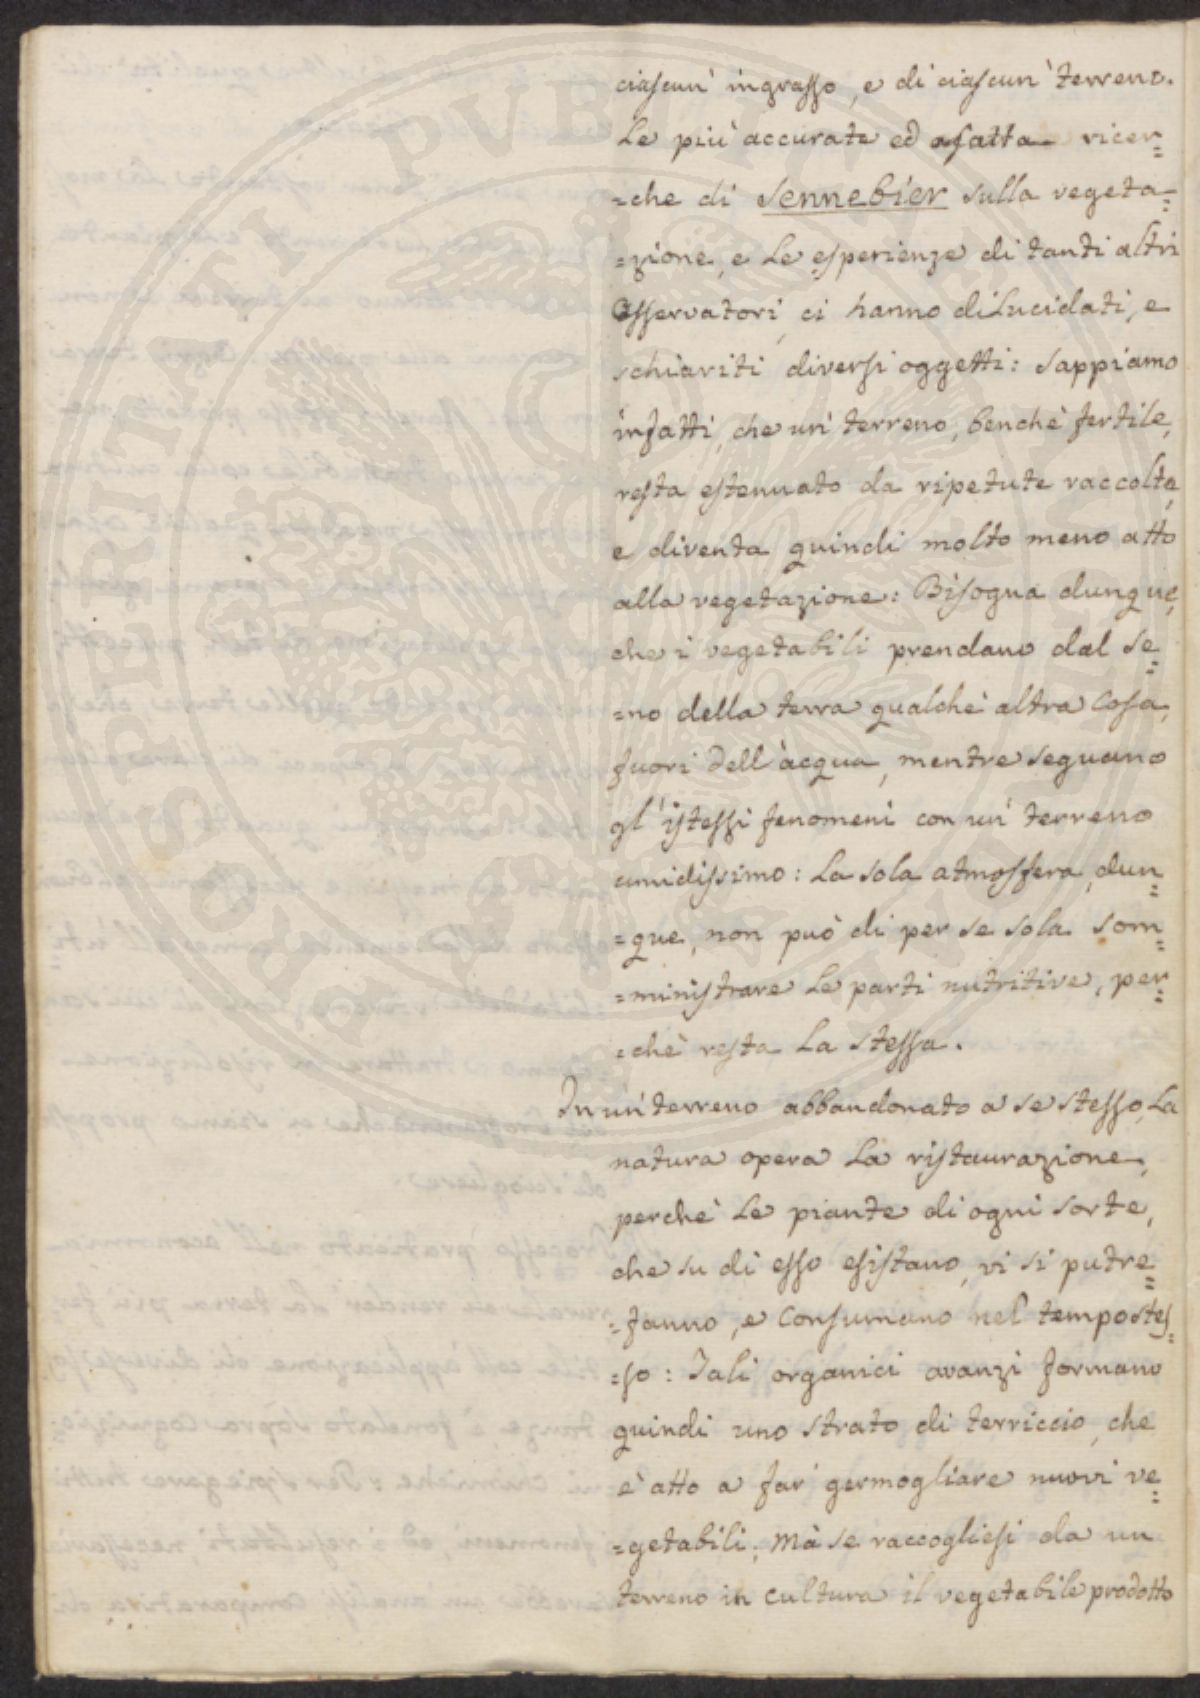 ciascun' ingrasso, e di ciascun' terreno.
Le più accurate ed asatta ricer=
=che di Sennebier sulla vegeta=
=zione, e Le esperienze di tanti altri
Osservatori, ci hanno diLucidati, e
schiariti diversi oggetti: Sappiamo
infatti, che un' terreno, benchè fertile,
resta estenuato da ripetute raccolte,
e diventa quindi molto meno atto
alla vegetazione: Bisogna dunque,
che i vegetabili prendano dal se=
=no della terra qualche altra Cosa,
fuori dell'acqua, mentre seguano
gl'istessi fenomeni con un' terreno
umidissimo: La sola atmosfera, dun=
=que, non può di per se sola som=
=ministrare Le parti nutritive, per=
=chè resta La stessa.
In un' terreno abbandonato a se stesso, La
natura opera La ristaurazione,
perchè Le piante di ogni sorte,
che su di esso esistano, vi si putre=
=fanno, e Consumano nel tempo stes=
=so: Tali organici avanzi formano
quindi uno strato di terriccio, che
è atto a far' germogliare nuovi ve=
=getabili; Mà se raccogliesi da un
terreno in cultura il vegetabile prodotto
PROSPERITATI PUBLICAE AUGENDAE